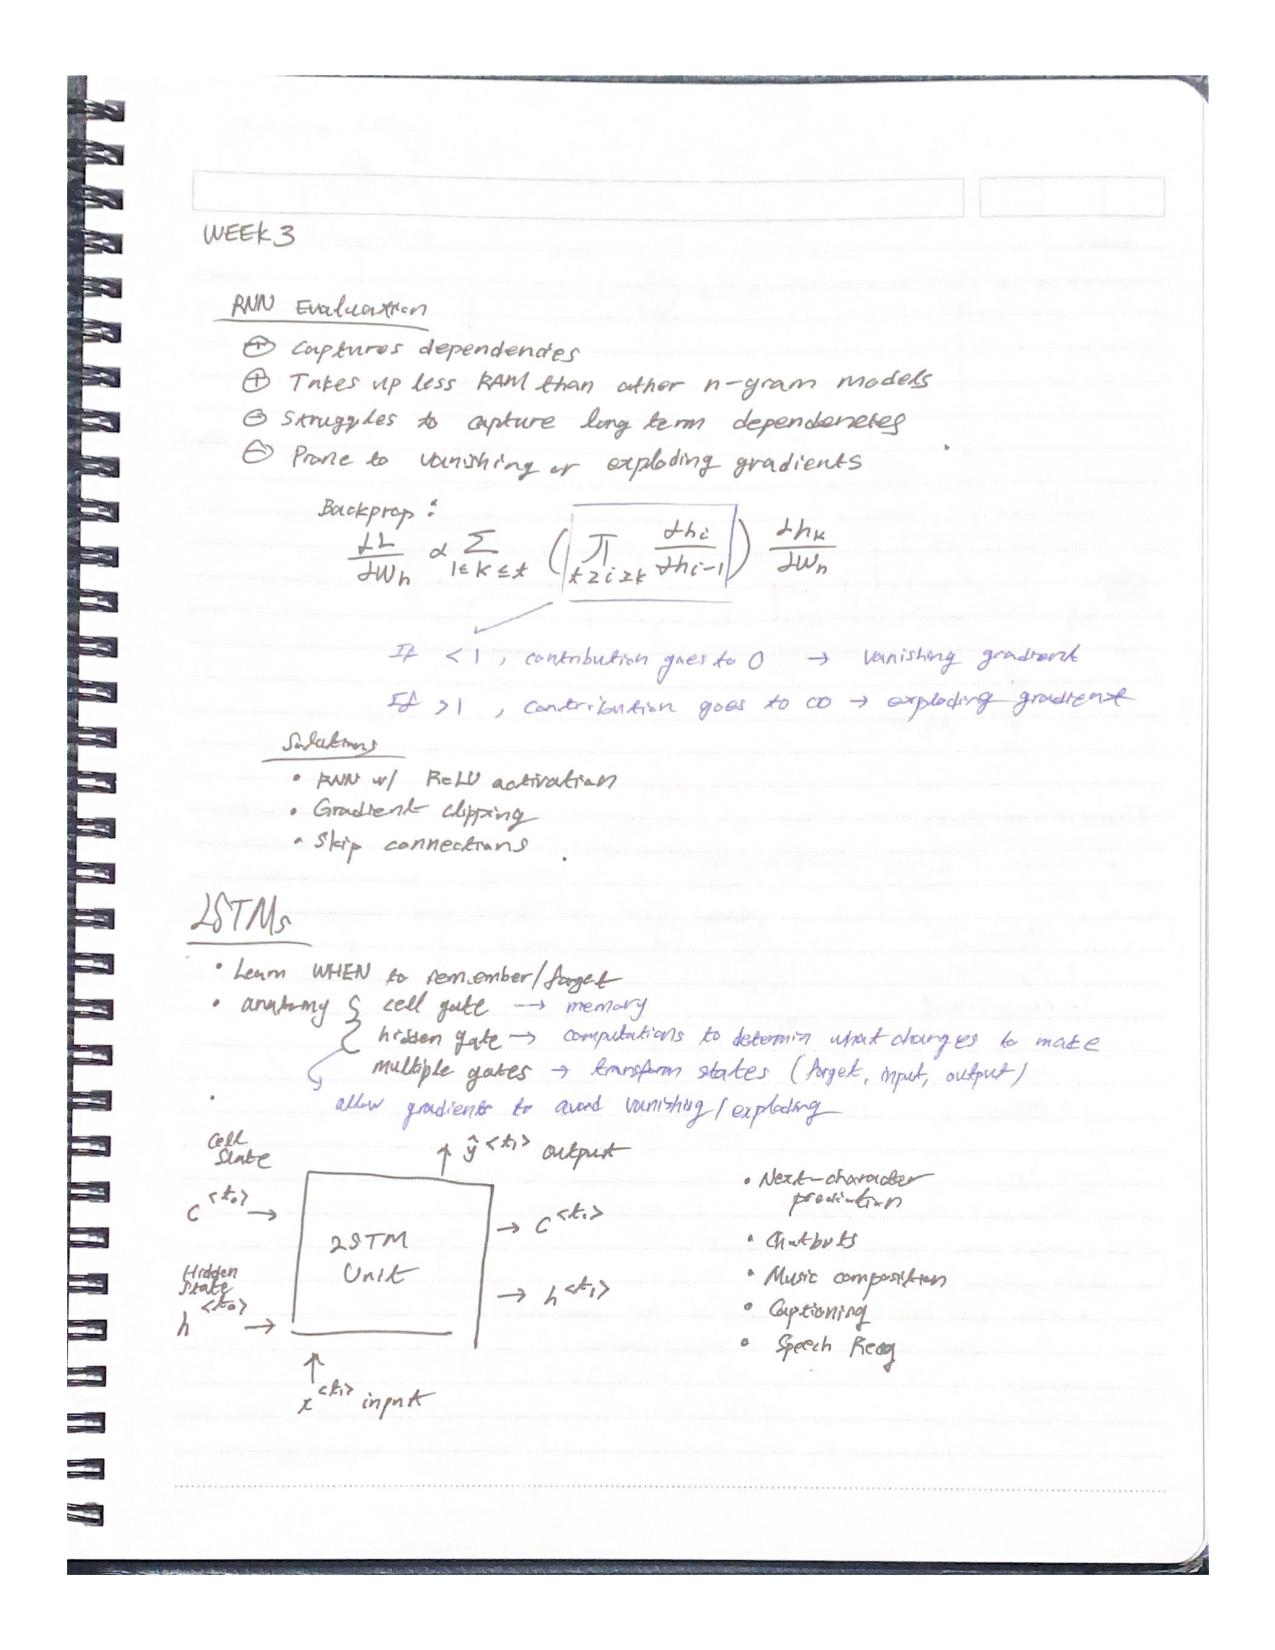 WEEK 3
RNN Evaluation
⊕ Captures dependencies
⊕ Takes up less RAM than other n-gram models
⊖ Struggles to capture long term dependencies
⊖ Prone to vanishing or exploding gradients
Backprop:
∂L/∂W_h ∝ Σ_{1≤k≤t} ( ∏_{t≥i≥k} ∂h_i/∂h_{i-1} ) ∂h_k/∂W_h
If < 1 , contribution goes to 0 → vanishing gradient
If > 1 , contribution goes to ∞ → exploding gradient
Solutions
• RNN w/ ReLU activation
• Gradient clipping
• Skip connections
LSTMs
• Learn WHEN to remember/forget
• anatomy { cell gate → memory
hidden gate → computations to determin what changes to make
multiple gates → transform states (forget, input, output)
allow gradients to avoid vanishing/exploding
Cell State
ŷ^<t₁> output
c^<t₀> →
→ c^<t₁>
LSTM Unit
Hidden State
h^<t₀> →
→ h^<t₁>
↑
x^<t₁> input
• Next-character prediction
• Chatbots
• Music composition
• Captioning
• Speech Recog